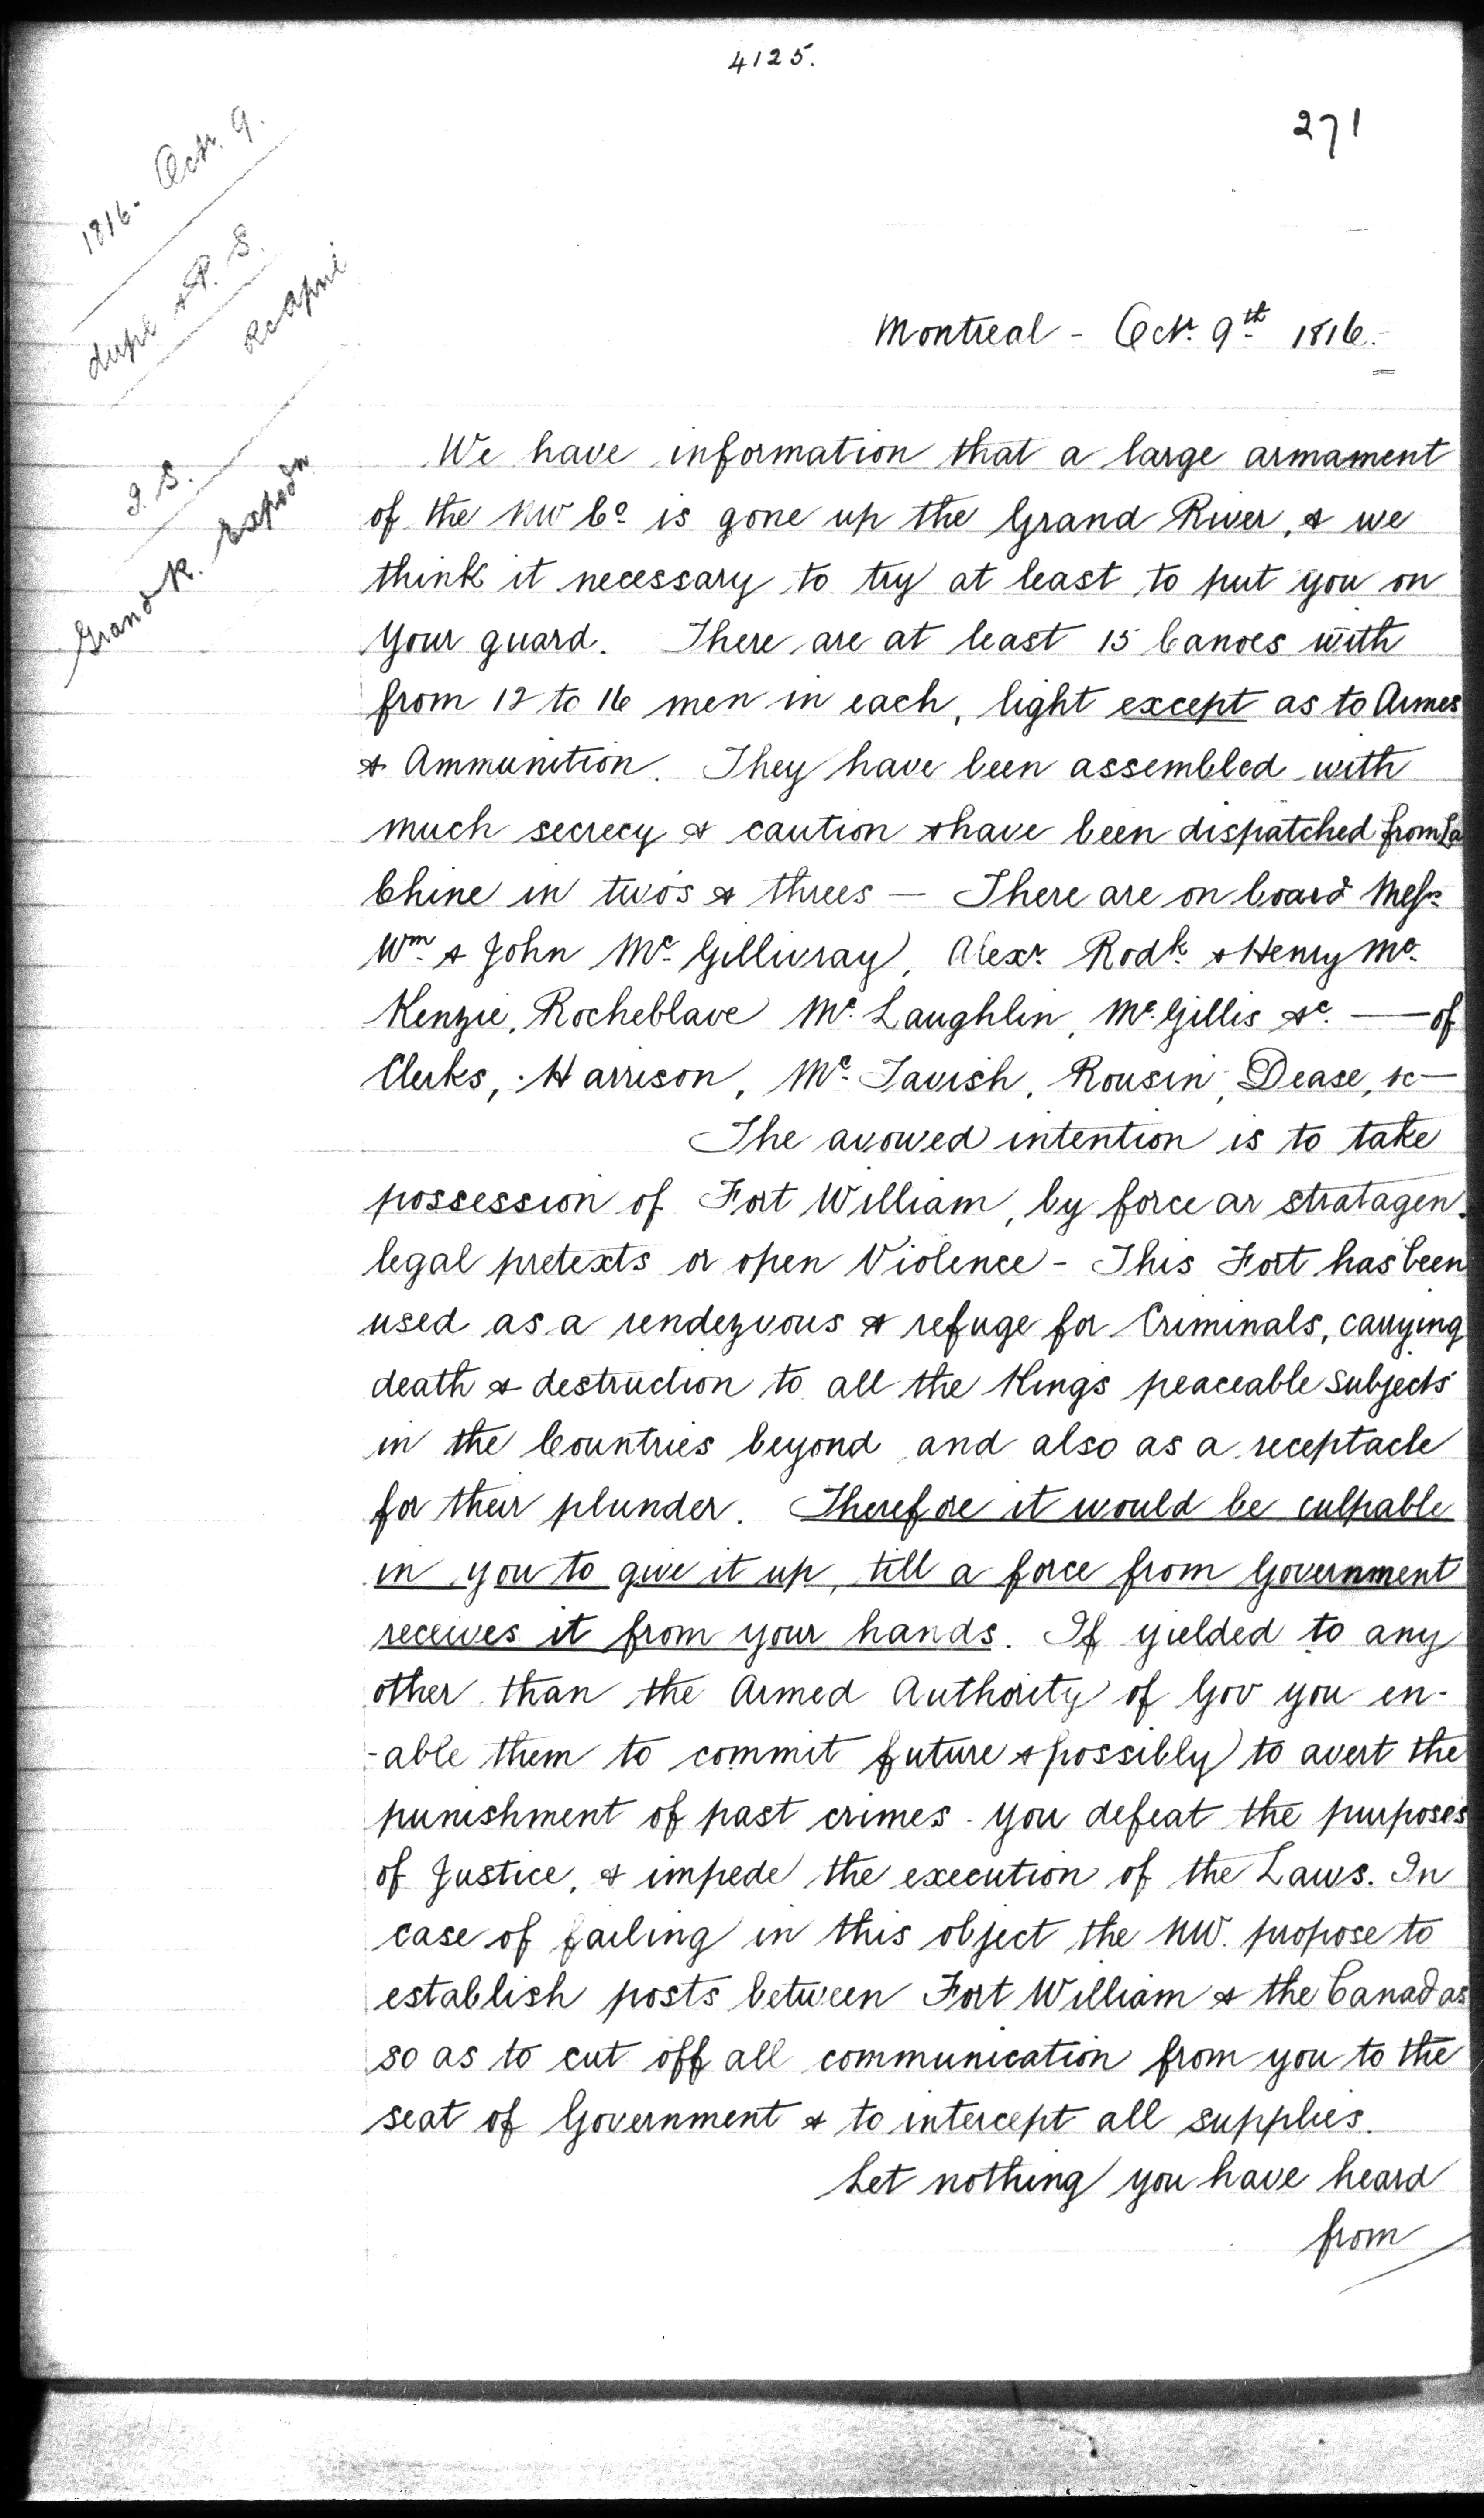 4125.
271
1816 - Octr. 9.
dupl & P. S.
Rc April
J. S.
Grand R. Expedn
Montreal - Octr. 9th 1816.
We have information that a large armament
of the NW Co is gone up the Grand River, & we
think it necessary to try at least to put you on
your guard. There are at least 15 Canoes with
from 12 to 16 men in each, light except as to Armes
& Ammunition. They have been assembled with
much secrecy & caution & have been dispatched from La
Chine in two's & threes — There are on board Messrs
Wm. & John Mc. Gillivray, Alexr. Rodk. & Henry Mc.
Kenzie, Rocheblave Mc. Laughlin, Mc. Gillis &c. — of
Clerks, Harrison, Mc. Tavish, Rousin, Dease, &c —
The avowed intention is to take
possession of Fort William, by force or stratagen.
legal pretexts or open Violence - This Fort has been
used as a rendezvous & refuge for Criminals, carrying
death & destruction to all the Kings peaceable subjects
in the Countries beyond and also as a receptacle
for their plunder. Therefore it would be culpable
in you to give it up, till a force from Government
receives it from your hands. If yielded to any
other than the Armed Authority of Gov you en-
-able them to commit future & possibly to avert the
punishment of past crimes. you defeat the purposes
of Justice, & impede the execution of the Laws. In
case of failing in this object the NW. propose to
establish posts between Fort William & the Canadas
so as to cut off all communication from you to the
seat of Government & to intercept all supplies.
Let nothing you have heard
from